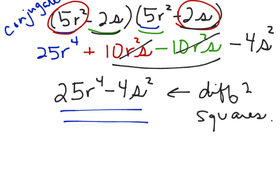 conjugate
(5r² - 2s)(5r² - 2s)
25r⁴ + 10r²s - 10r²s - 4s²
25r⁴ - 4s² ← diff 2
squares.